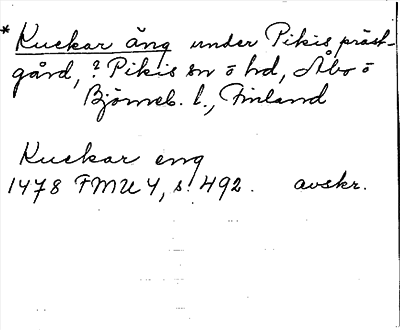 * Kuckar äng under Pikis präst-
gård, ? Pikis sn o hd, Åbo o
Björneb. l., Finland
Kuckar eng
1478 FMU 4, s. 492. avskr.